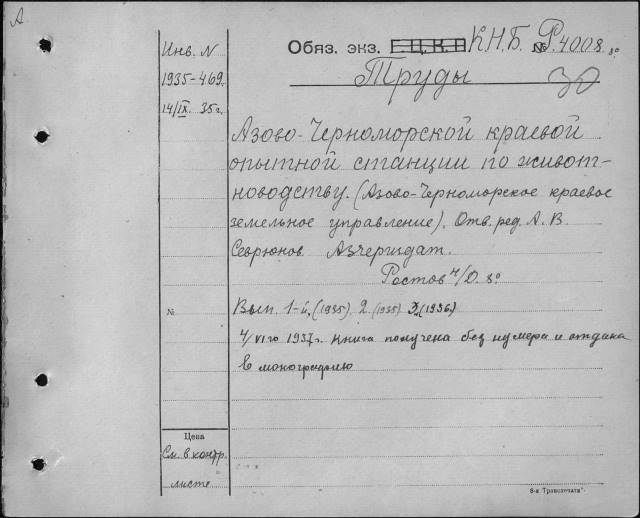 А
Инв. N
1935-469.
14/IX. 35 г.
Обяз. экз. Г.Ц.К.П К.Н.Б. № Р.4008. 8°
Труды
Азово-Черноморской краевой
опытной станции по живот-
новодству. (Азово-Черноморское краевое
земельное управление). Отв. ред. А. В.
Севрюков. Азчериздат.
Ростов н/Д. 8°
№
Вып. 1-й. (1935) 2. (1935) 3. (1936)
4/VI го 1937 г. книга получена без нумера и отдана
в монографию
Цена
См. в контр.
листе
8-я "Транспечати".